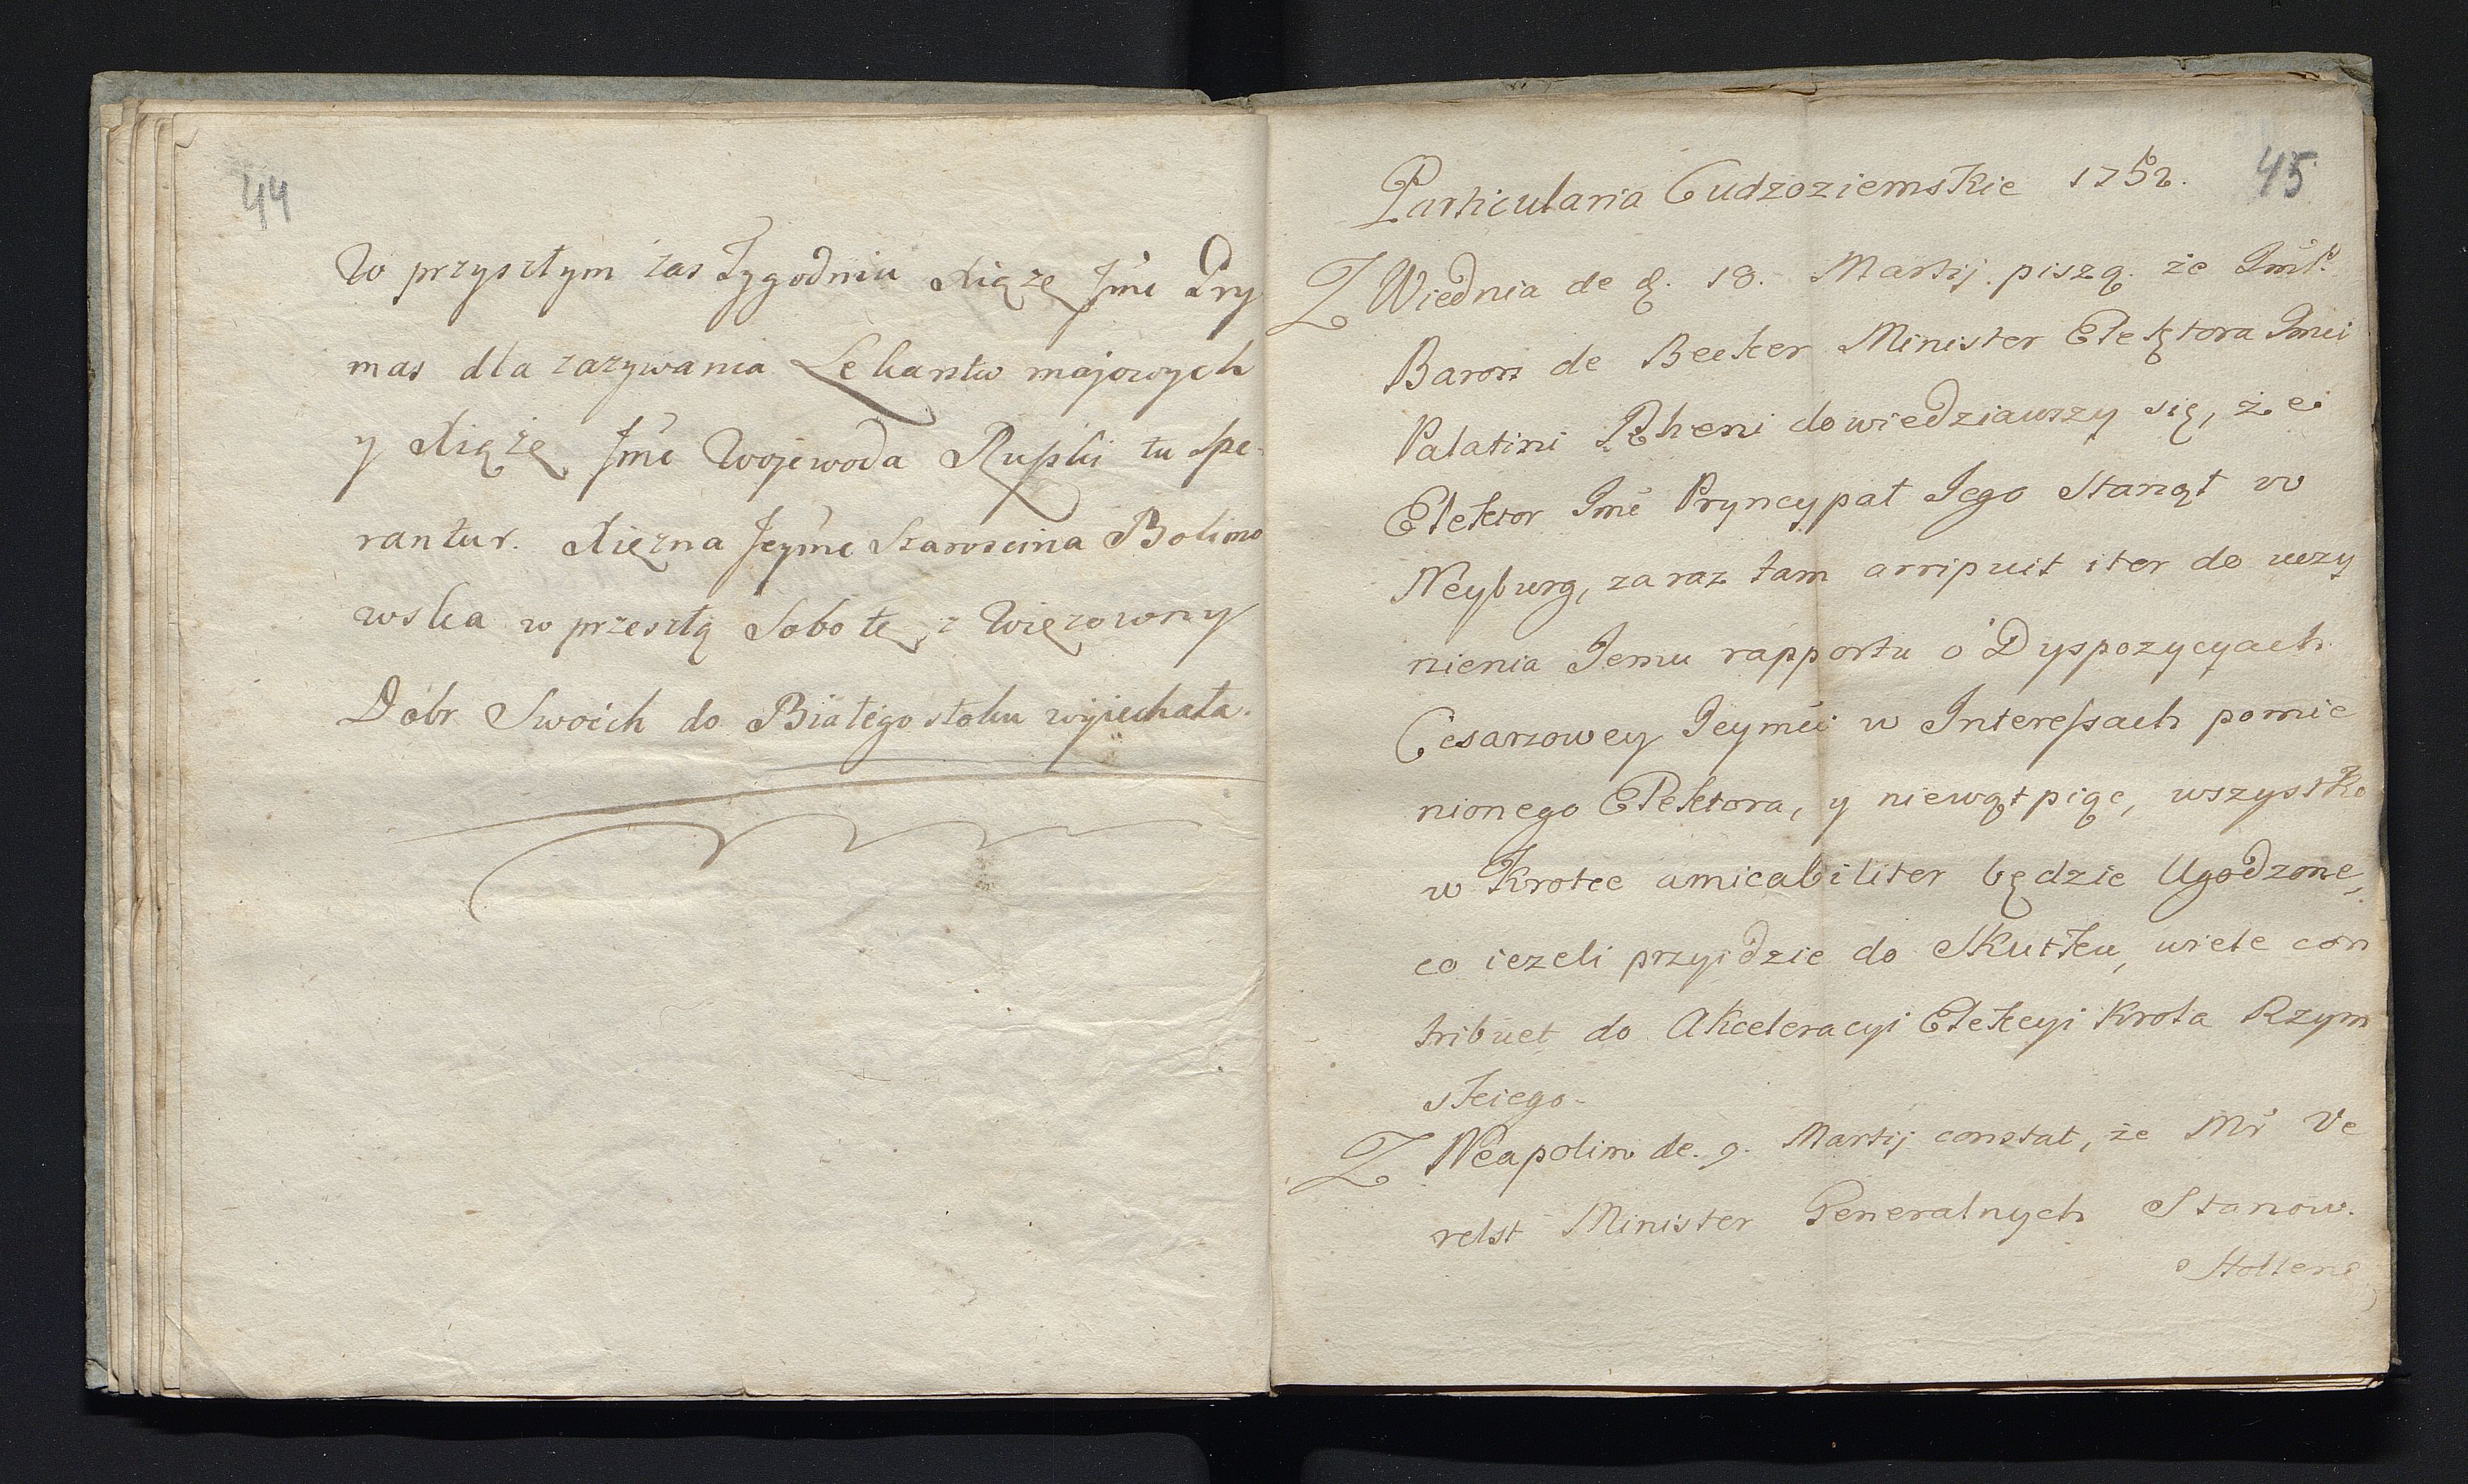 44
W przyszłym zas Tygodniu Xiąże Jmc Pry
mas dla zazywania Lekarstw majowych
y Xiąże Jmc Wojewoda Ruski tu spe-
rantur. Xięzna Jeymc Staroscina Bolimo
wska w przeszłą Sobotę z Więzowny
Dobr Swoich do Białegostoku wyiechała.
45
Particularia Cudzoziemskie 1752.
Z Wiednia de d. 18. Martij piszą. że Jmć P.
Baron de Becker Minister Elektora Jmci
Palatini Rheni dowiedziawszy się, że
Elektor Jmć Pryncypał Jego Stanął w
Neyburg, zaraz tam arripuit iter do uczy
nienia Jemu rapportu o Dyspozycyach
Cesarzowey Jeymći w Interessach pomie
nionego Elektora, y niewątpiąc, wszystko
w Krotce amicabiliter będzie Ugodzone,
co iezeli przyidzie do Skutku, wiele con
tribuet do Akceleracyi Elekcyi Krola Rzym
skiego.
Z Neapolim de. 9. Martij constat, że Mr Ve
relst Minister Generalnych Stanow.
Hollend